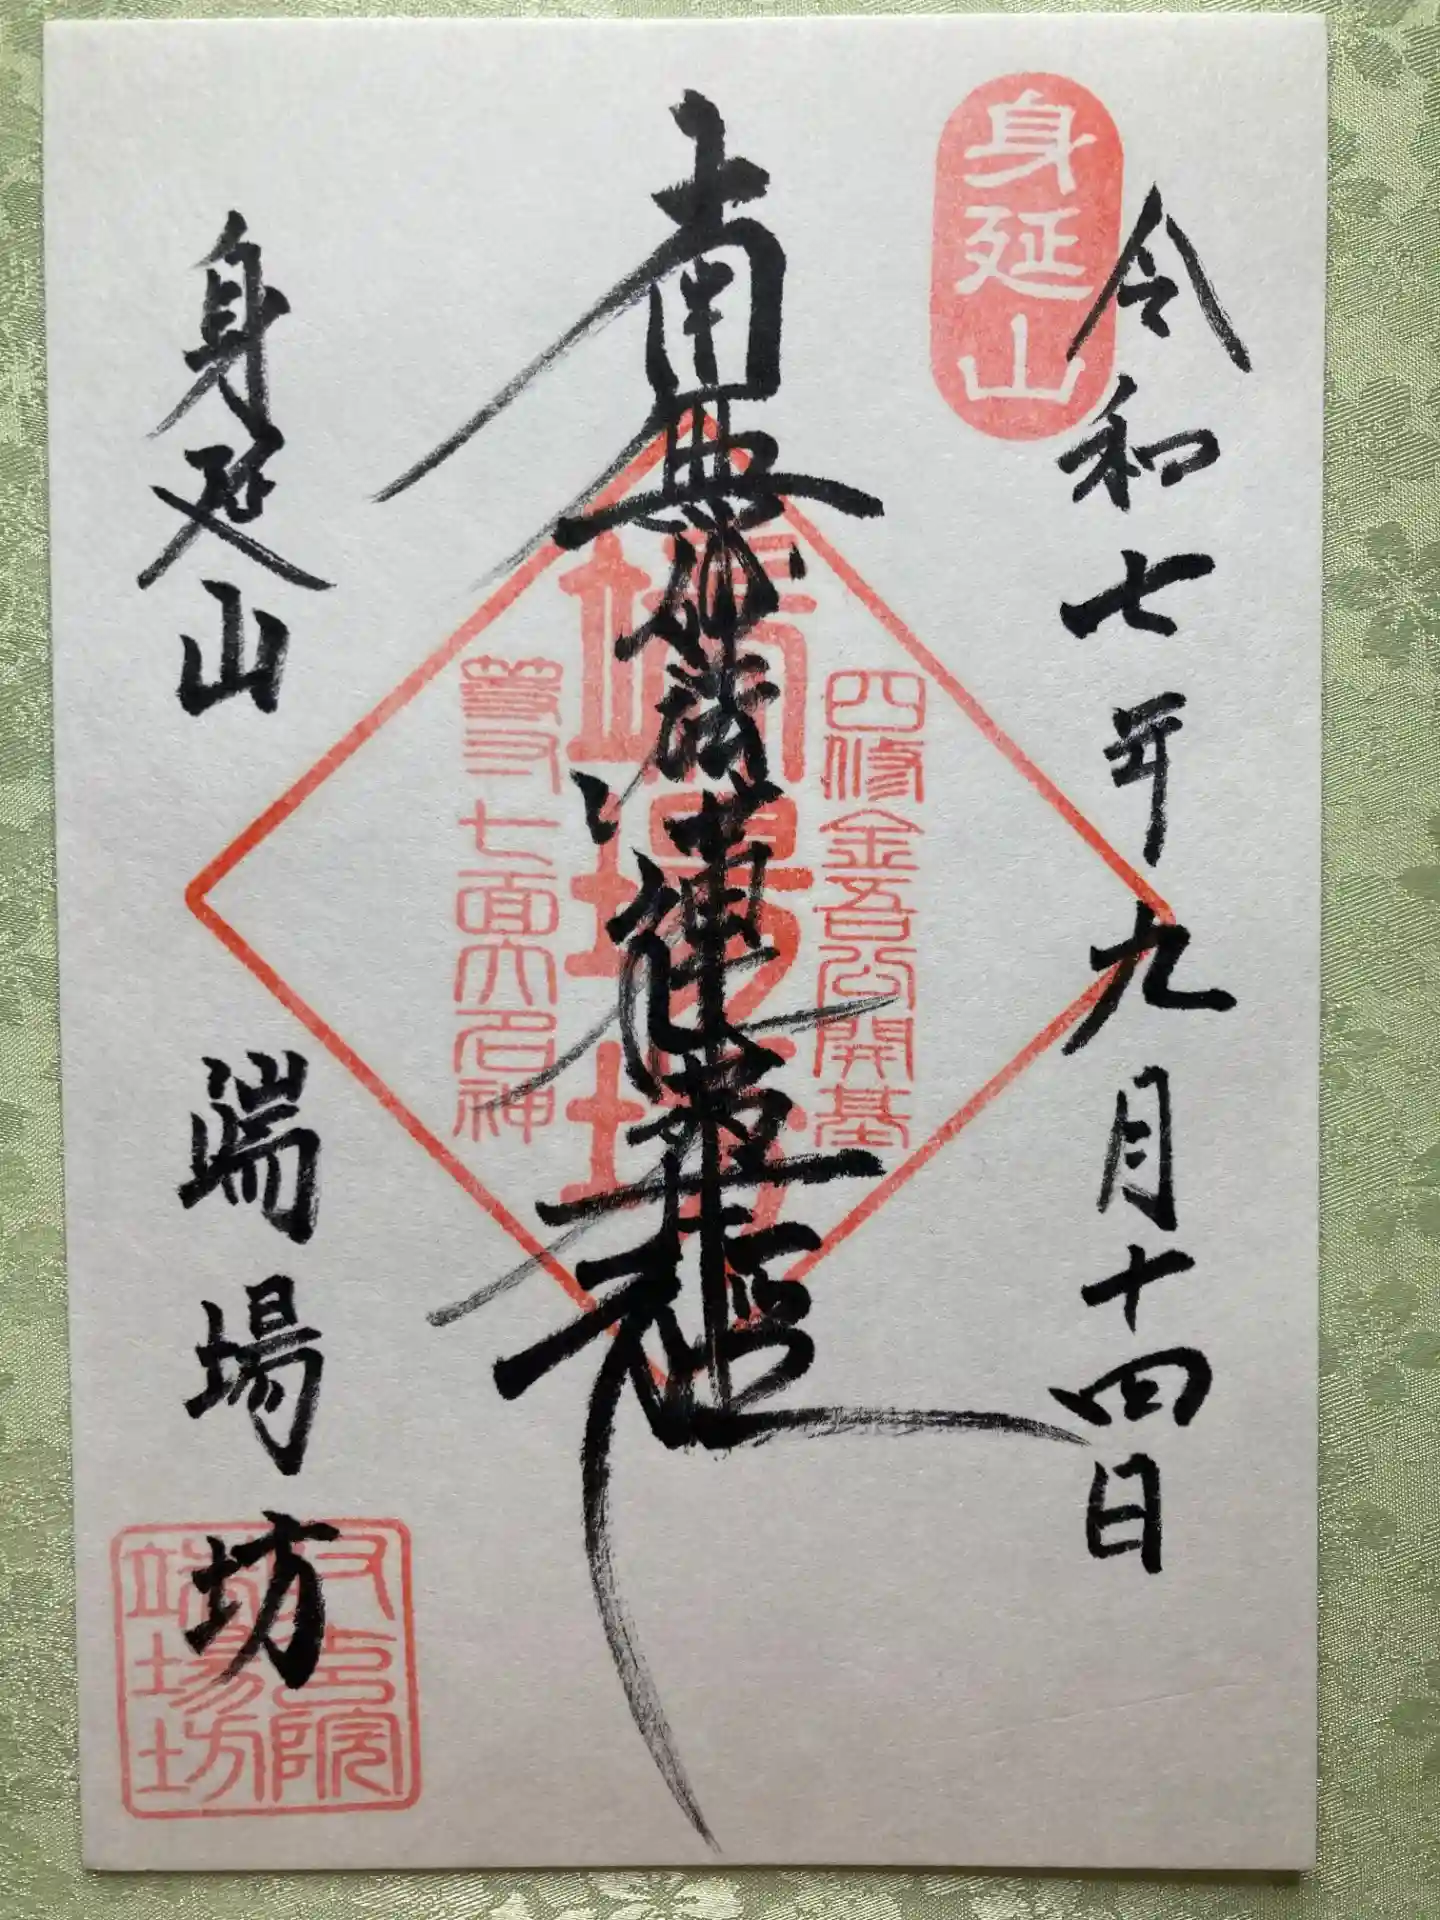 身延山
令和七年九月十四日
南無妙法蓮華経
四條金吾公開基
端場坊
七面大明神
身延山 端場坊
院
端場坊